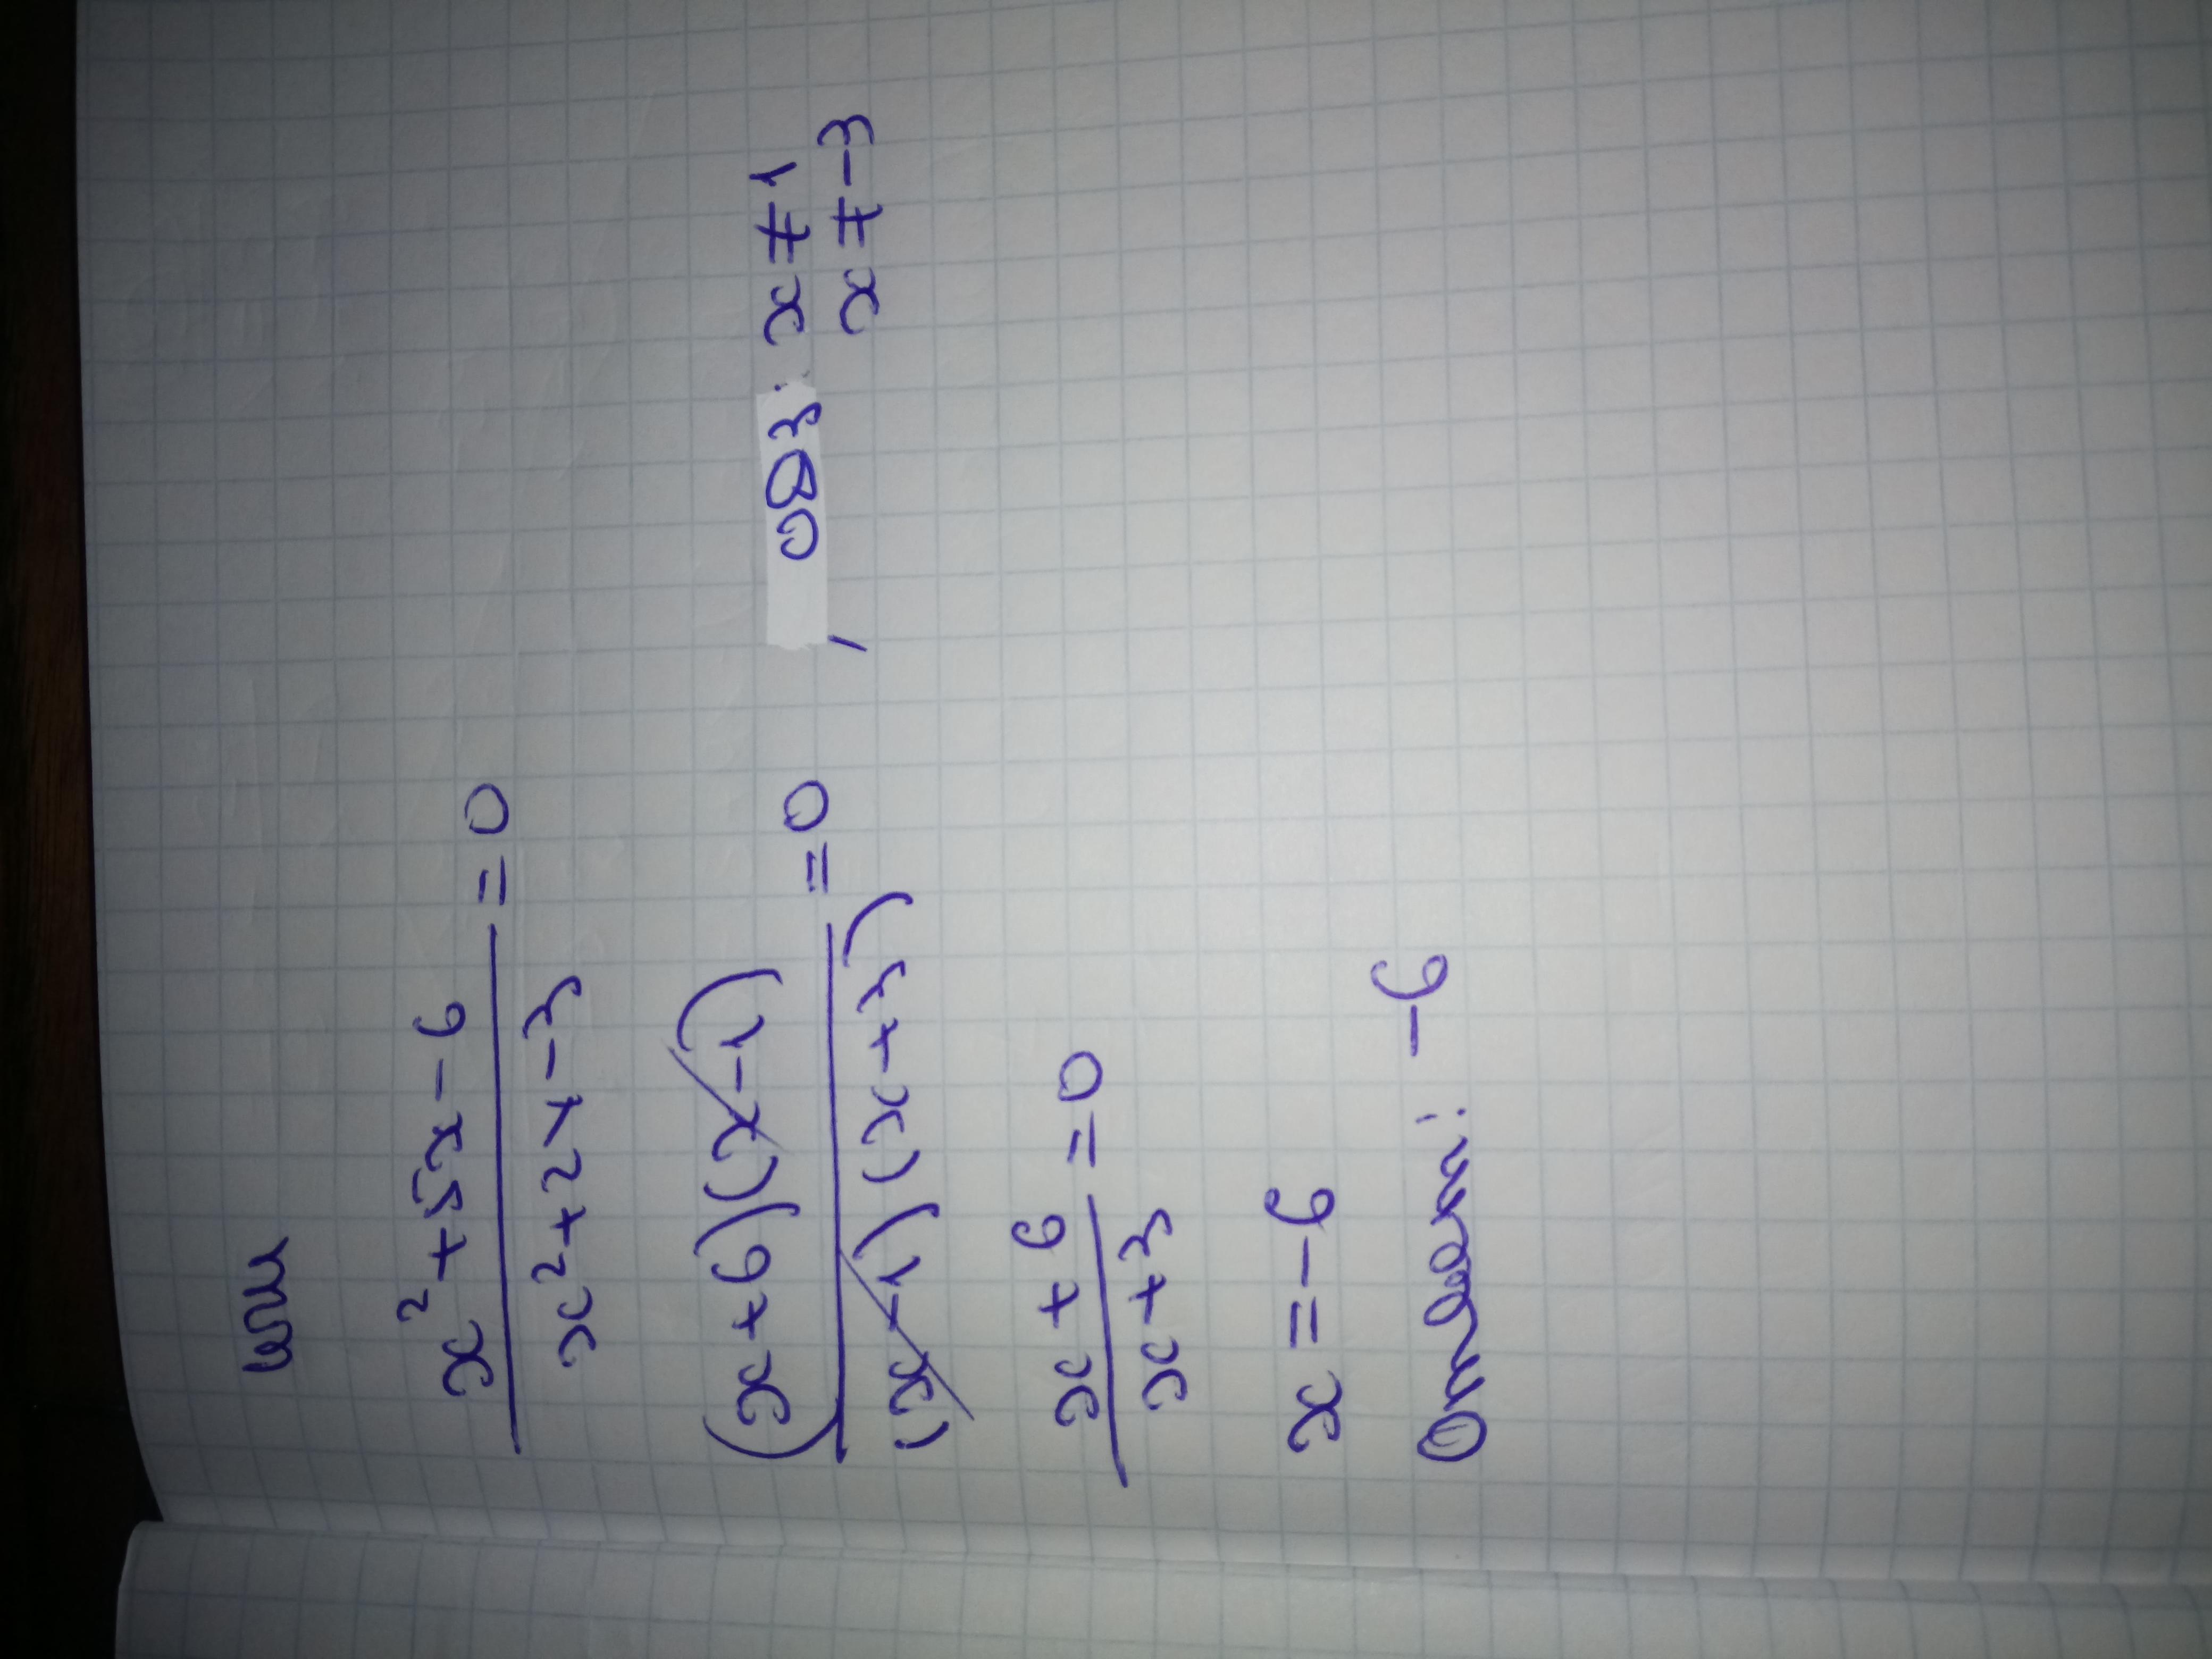 или
x² + 5x - 6 / x² + 2x - 3 = 0
(x + 6)(x - 1) / (x - 1)(x + 3) = 0 , ОВЗ: x ≠ 1
x ≠ -3
x + 6 / x + 3 = 0
x = -6
Ответ: -6